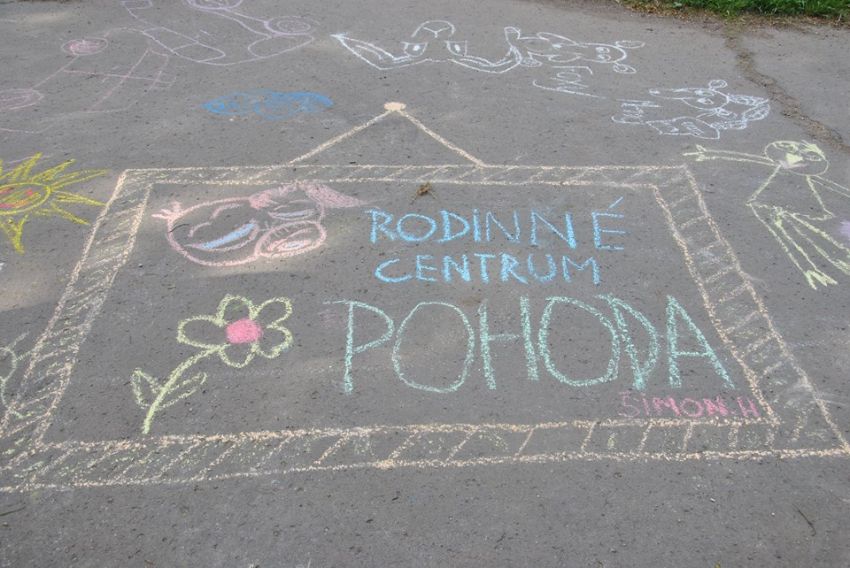 RODINNÉ
CENTRUM
POHODA
SIMON.H